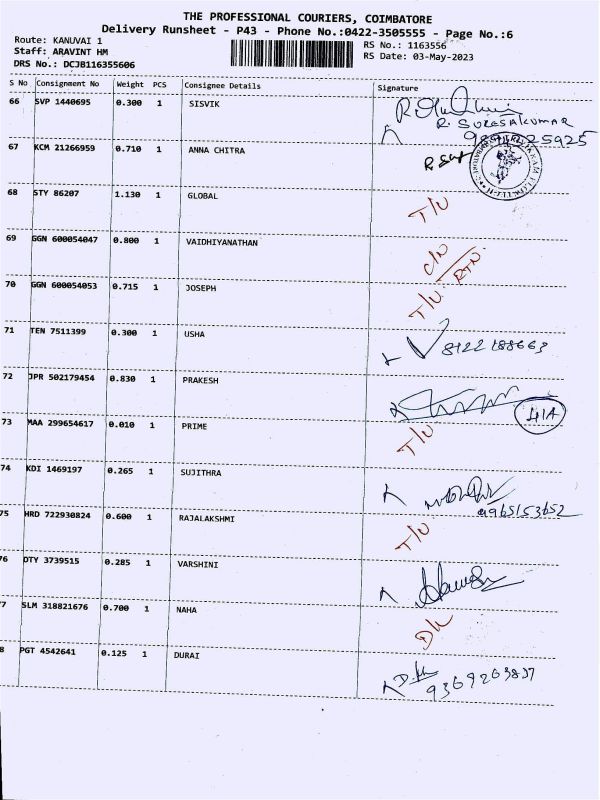 THE PROFESSIONAL COURIERS, COIMBATORE
Delivery Runsheet - P43 - Phone No.:0422-3505555 - Page No.:6
Route: KANUVAI 1 RS No.: 1163556
Staff: ARAVINT HM RS Date: 03-May-2023
DRS No.: DCJB116355606
S No Consignment No Weight PCS Consignee Details Signature
66 SVP 1440695 0.300 1 SISVIK
R. SURESAKUMAR
67 KCM 21266959 0.710 1 ANNA CHITRA
68 STY 86207 1.130 1 GLOBAL T/U
69 GGN 600054047 0.800 1 VAIDHIYANATHAN C/N RTN
70 GGN 600054053 0.715 1 JOSEPH T/U
71 TEN 7511399 0.300 1 USHA 8122188663
72 JPR 502179454 0.830 1 PRAKESH 41A
73 MAA 299654617 0.010 1 PRIME T/U
74 KDI 1469197 0.265 1 SUJITHRA 9965153652
75 HRD 722930824 0.600 1 RAJALAKSHMI T/U
76 DTY 3739515 0.285 1 VARSHINI
7 SLM 318821676 0.700 1 NAHA D/L
8 PGT 4542641 0.125 1 DURAI 9369263837